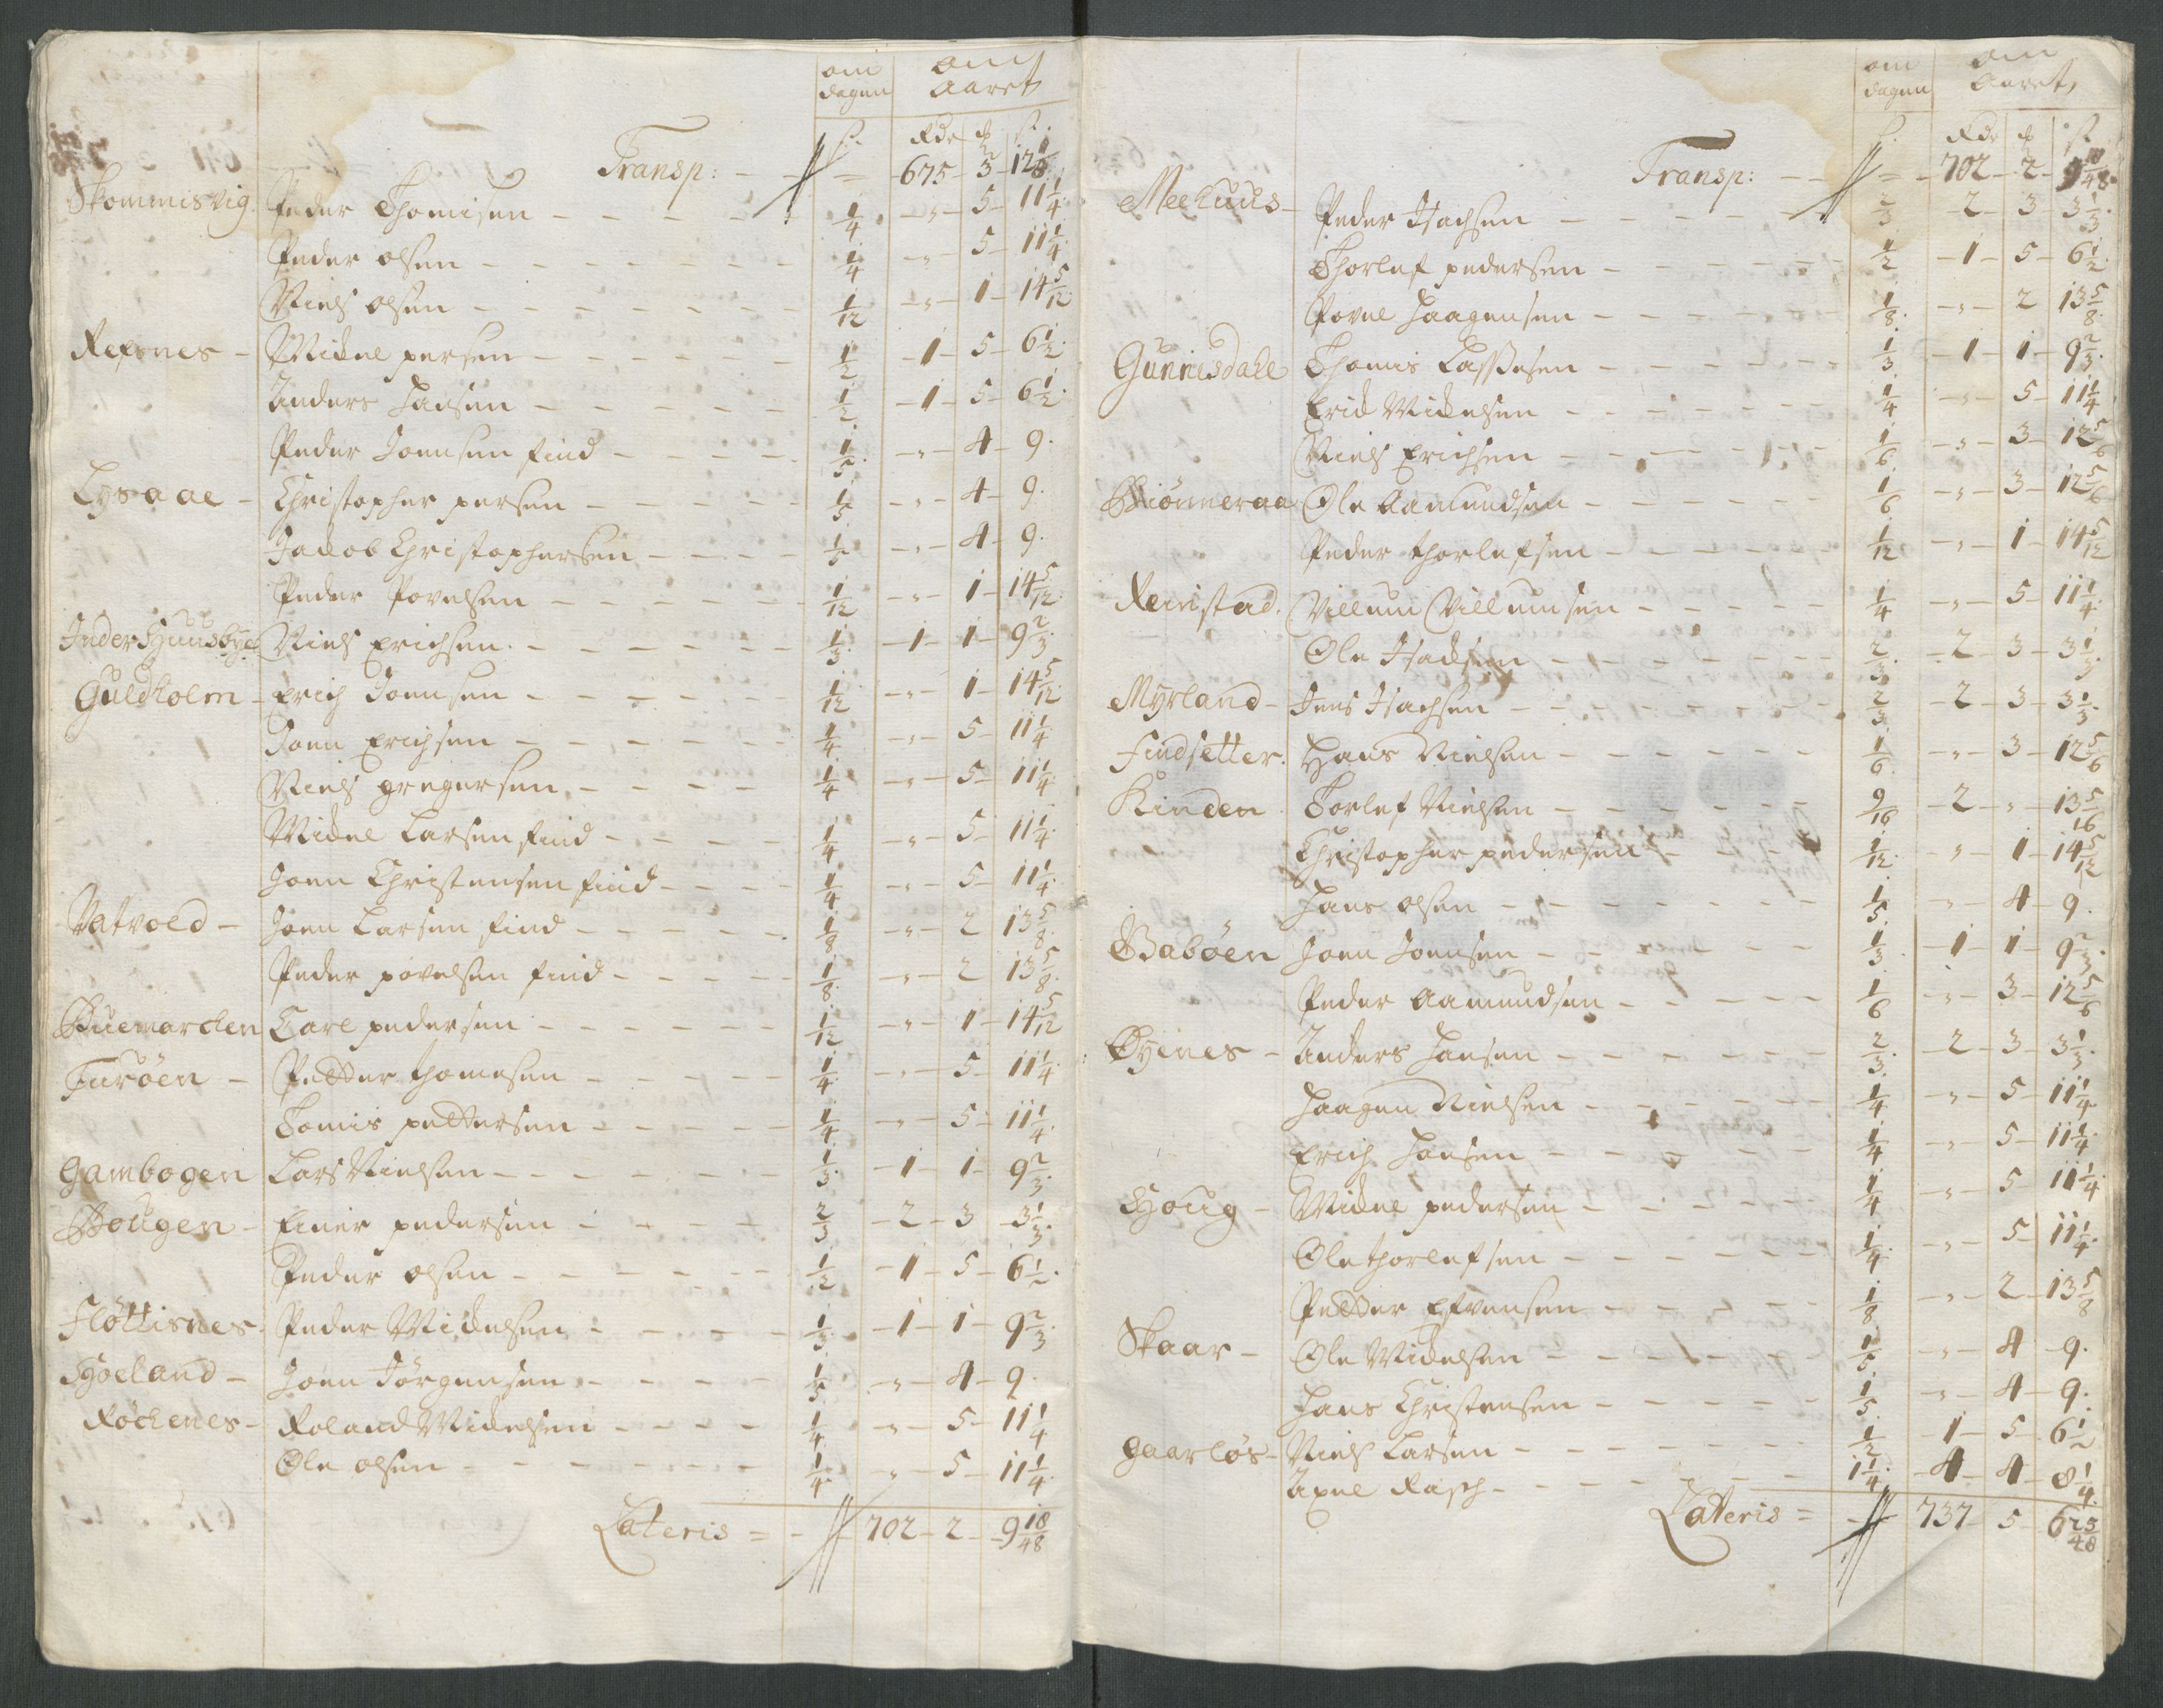 om dagen om Aaret
ß. Rdr ₰ ß.
Transp: - - 675 - 3 - 12 1/8
Skommisvig Peder Thomisen - - - 1/4 - „ - 5 - 11 1/4
Peder olsen - - - 1/4 - „ - 5 - 11 1/4
Niels olsen - - - 1/12 - „ - 1 - 14 5/12
Refsnes - Mickel persen - - - 1/2 - 1 - 5 - 6 1/2
Anders Hansen - - - 1/2 - 1 - 5 - 6 1/2
Peder Joensen find - - - 1/5 - „ - 4 - 9
Lysaae - Christopher persen - - - 1/5 - „ - 4 - 9
Jacob Christophersen - - - 1/5 - „ - 4 - 9
Peder Povelsen - - - 1/12 - „ - 1 - 14 5/12
Inder Huusbye Niels Erichsen - - - 1/3 - 1 - 1 - 9 2/3
Guldholm - Erich Joensen - - - 1/12 - „ - 1 - 14 5/12
Joen Erichsen - - - 1/4 - „ - 5 - 11 1/4
Niels gregersen - - - 1/4 - „ - 5 - 11 1/4
Mickel Larsen find - - - 1/4 - „ - 5 - 11 1/4
Joen Christensen find - - - 1/4 - „ - 5 - 11 1/4
Vatvold - Joen Larsen find - - - 1/8 - „ - 2 13 5/8
Peder povelsen find - - - 1/8 - „ - 2 13 5/8
Buemarchen Carl pedersen - - - 1/12 - „ - 1 - 14 5/12
Furöen - Petter thomesen - - - 1/4 - „ - 5 - 11 1/4
Tomis pettersen - - - 1/4 - „ - 5 - 11 1/4
Gambogen Lars Nielsen - - - 1/3 - 1 - 1 - 9 2/3
Bougen - Einer pedersen - - - 2/3 - 2 - 3 - 3 1/3
Peder olsen - - - 1/2 - 1 - 5 - 6 1/2
Flöttisnes Peder Mickelsen - - - 1/3 - 1 - 1 - 9 2/3
Hoeland - Joen Jörgensen - - - 1/5 - „ - 4 - 9
Röckenes - Roland Mickelsen - - - 1/4 - „ - 5 - 11 1/4
Ole olsen - - - 1/4 - „ - 5 - 11 1/4
Lateris = - 702 - 2 - 9 18/48
om dagen om Aaret
ß. Rdr ₰ ß
Transp: - - 702 - 2 - 9 18/48
Meehuus - Peder Isachsen - - - 2/3 - 2 - 3 - 3 1/3
Thorlef pedersen - - - 1/2 - 1 - 5 - 6 1/2
Povel Haagensen - - - 1/8 - „ - 2 13 5/8
Gunnisdahl Thomis Lassesen - - - 1/3 - 1 - 1 - 9 2/3
Erick Mickelsen - - - 1/4 - „ - 5 - 11 1/4
Niels Erichsen - - - 1/6 - „ - 3 - 12 5/6
Biönneraa Ole Aamundsen - - - 1/6 - „ - 3 - 12 5/6
Peder thorlefsen - - - 1/12 - „ - 1 - 14 5/12
Reinstad Villum Villumsen - - - 1/4 - „ - 5 - 11 1/4
Ole Isachsen - - - 2/3 - 2 - 3 - 3 1/3
Myrland - Jens Isachsen - - - 2/3 - 2 - 3 - 3 1/3
Findsetter Hans Nielsen - - - 1/6 - „ - 3 - 12 5/6
Kinden Torlef Nielsen - - - 9/16 - 2 - „ - 13 5/16
Christopher pedersen - - - 1/12 „ - 1 - 14 5/12
Hans olsen - - - 1/5 „ - 4 - 9
Baböen Joen Joensen - - - 1/3 - 1 - 1 - 9 2/3
Peder Aamundsen - - - 1/6 - „ - 3 - 12 5/6
Öyenes - Anders Hansen - - - 2/3 - 2 - 3 - 3 1/3
Haagen Nielsen - - - 1/4 - „ - 5 - 11 1/4
Erich Hansen - - - 1/4 - „ - 5 - 11 1/4
Houg - Mickel pedersen - - - 1/4 - „ - 5 11 1/4
Ole thorlefsen - - - 1/4 - „ - 5 - 11 1/4
Petter Efvensen - - - 1/8 - „ - 2 - 13 5/8
Skaar - Ole Mickelsen - - - 1/5 - „ - 4 - 9
Hans Christensen - - - 1/5 - „ - 4 - 9
Gaarlös - Niels Larsen - - - 1/2 - 1 - 5 - 6 1/2
Axel Rasch - - - 1 1/4 - 4 - 4 - 8 1/4
Lateris = - 737 - 5 - 6 25/48